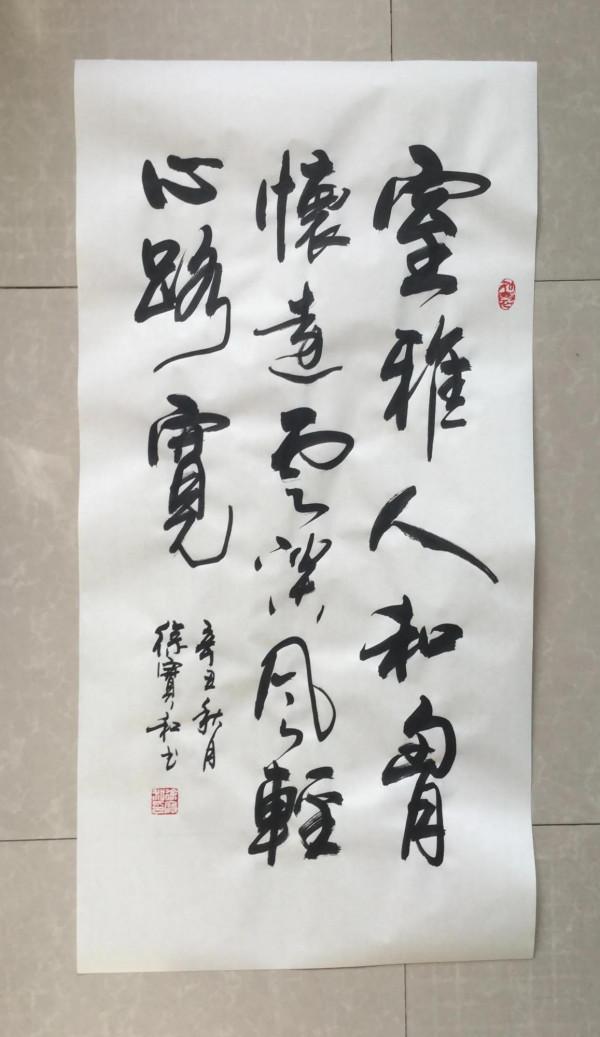 室雅人和胷
懷遠雲淡風輕
心路寬
辛丑秋月
徐寶和书